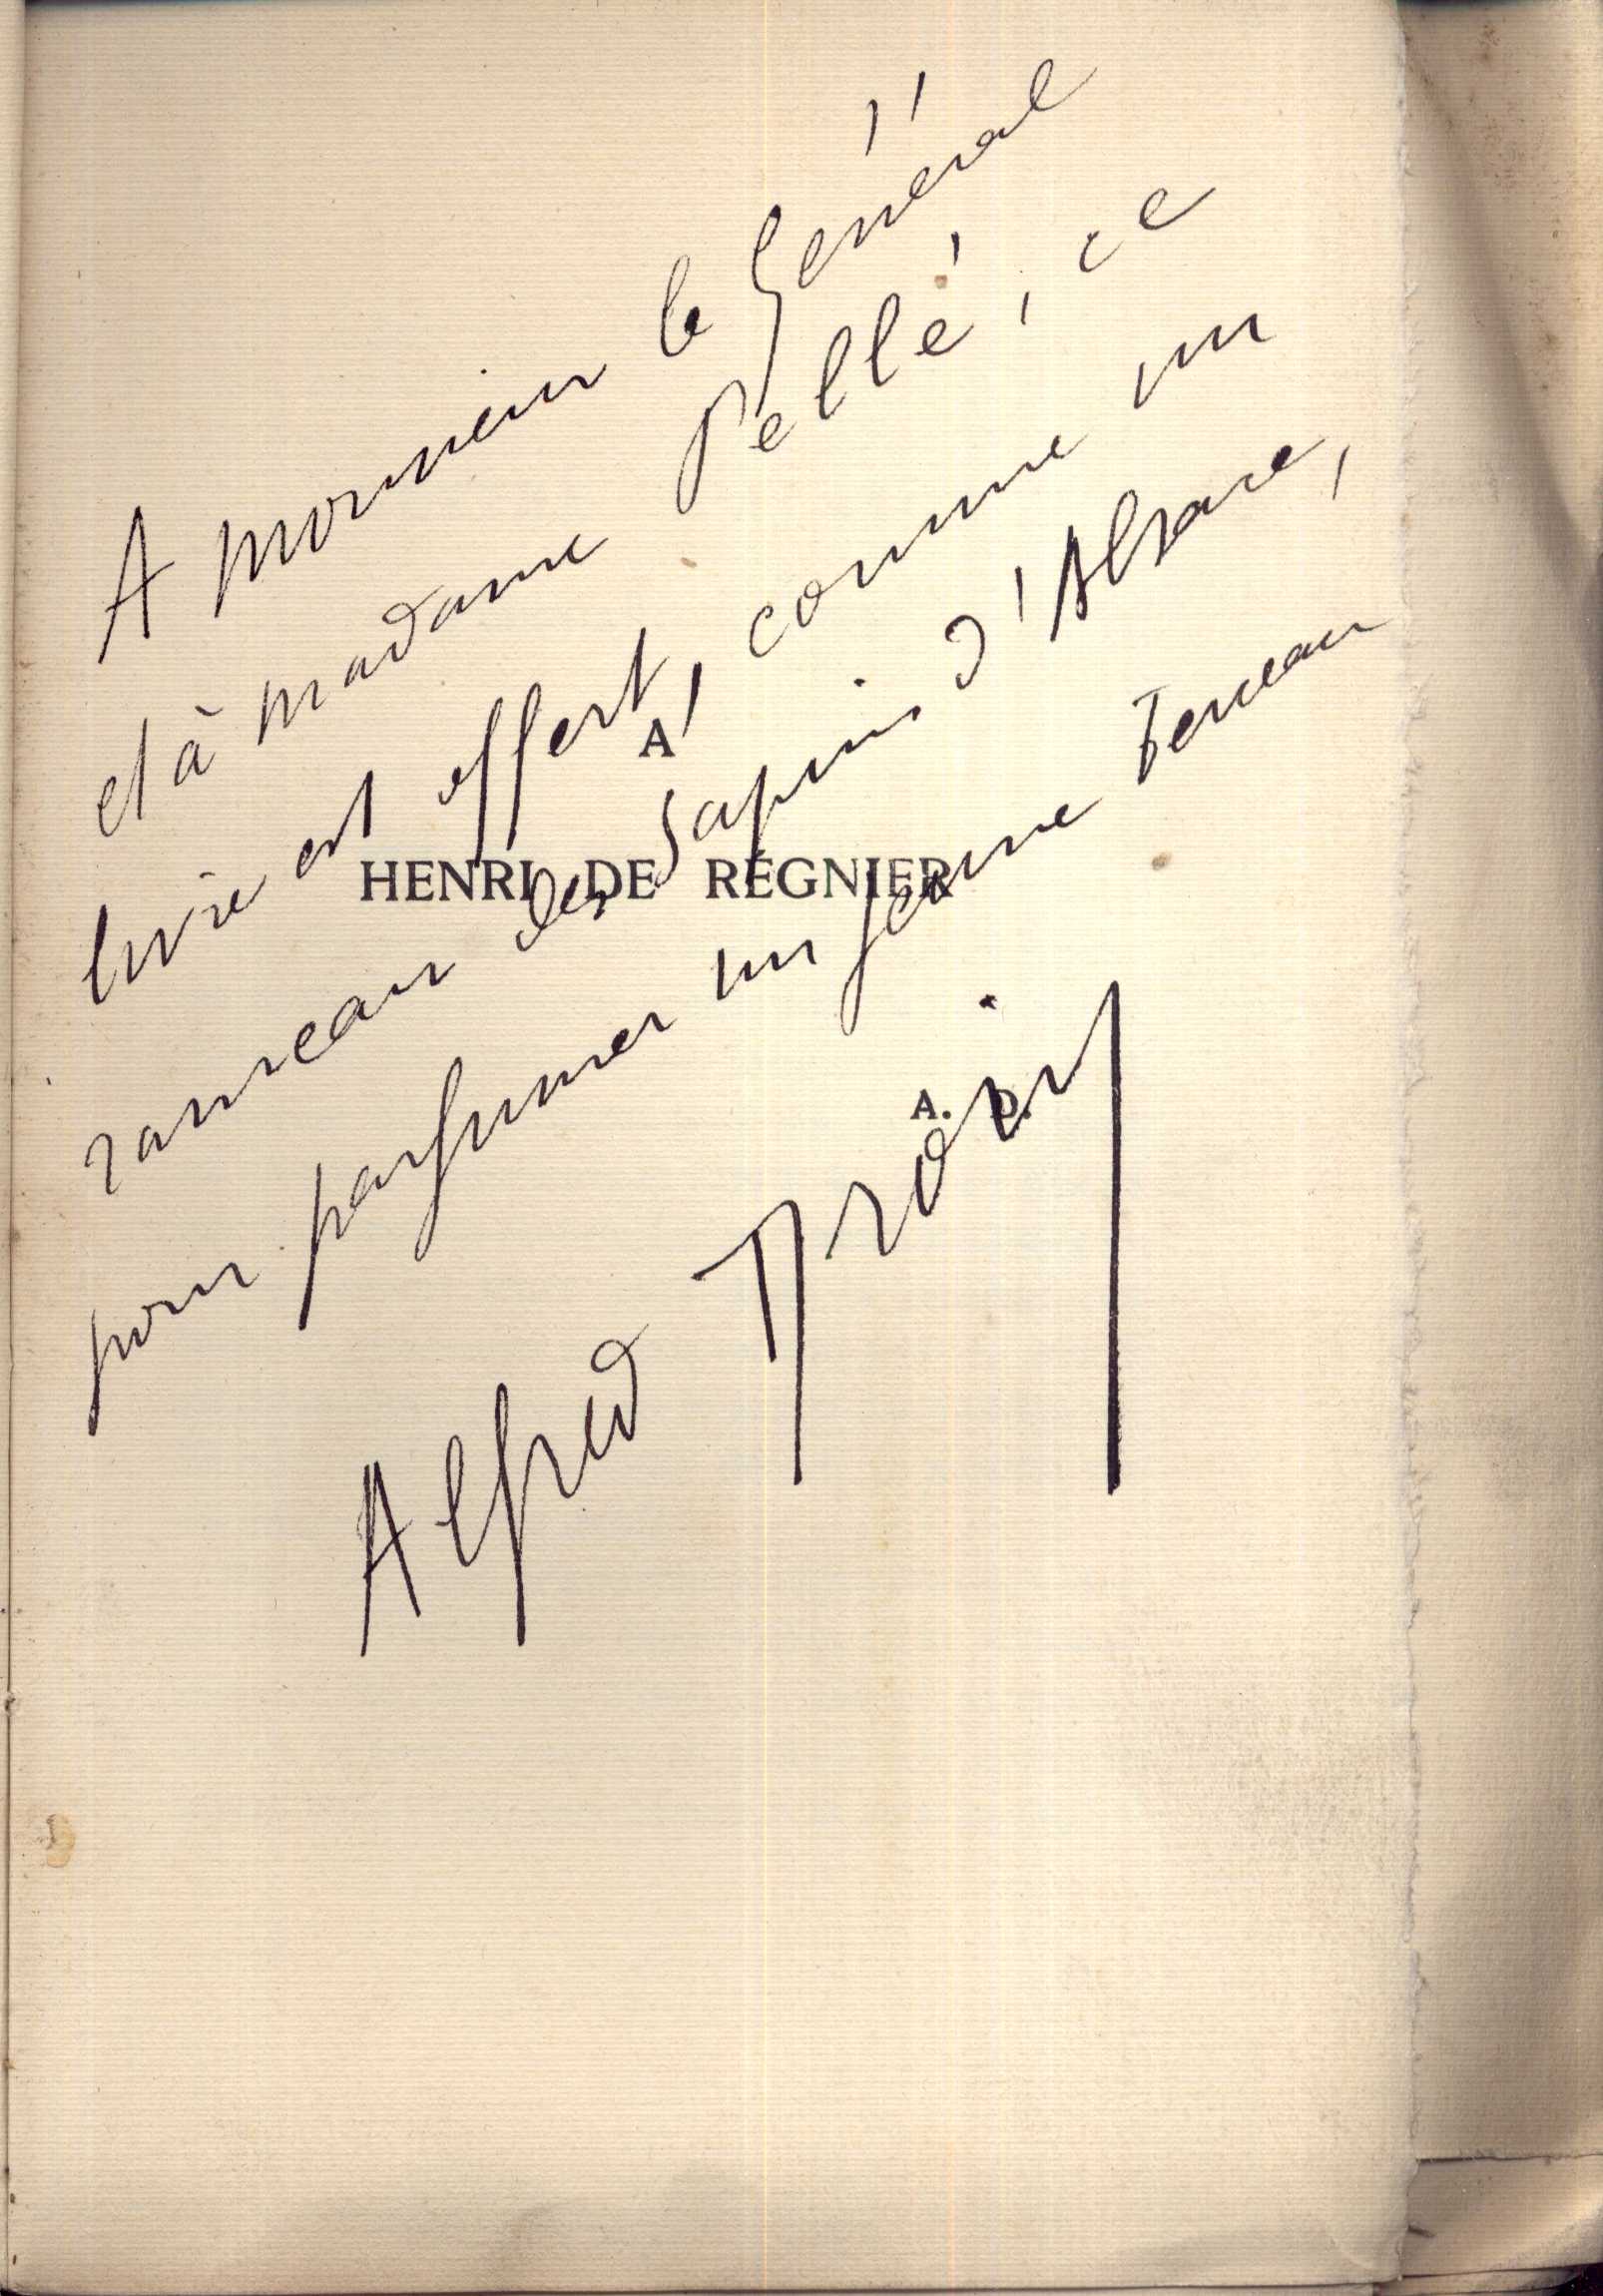 A monsieur le Général
et à madame Pellé, ce
livre est offert, comme un
rameau des sapins d'Alsace,
pour parfumer un jeune berceau
Alfred Droin
A
HENRI DE RÉGNIER
A. D.